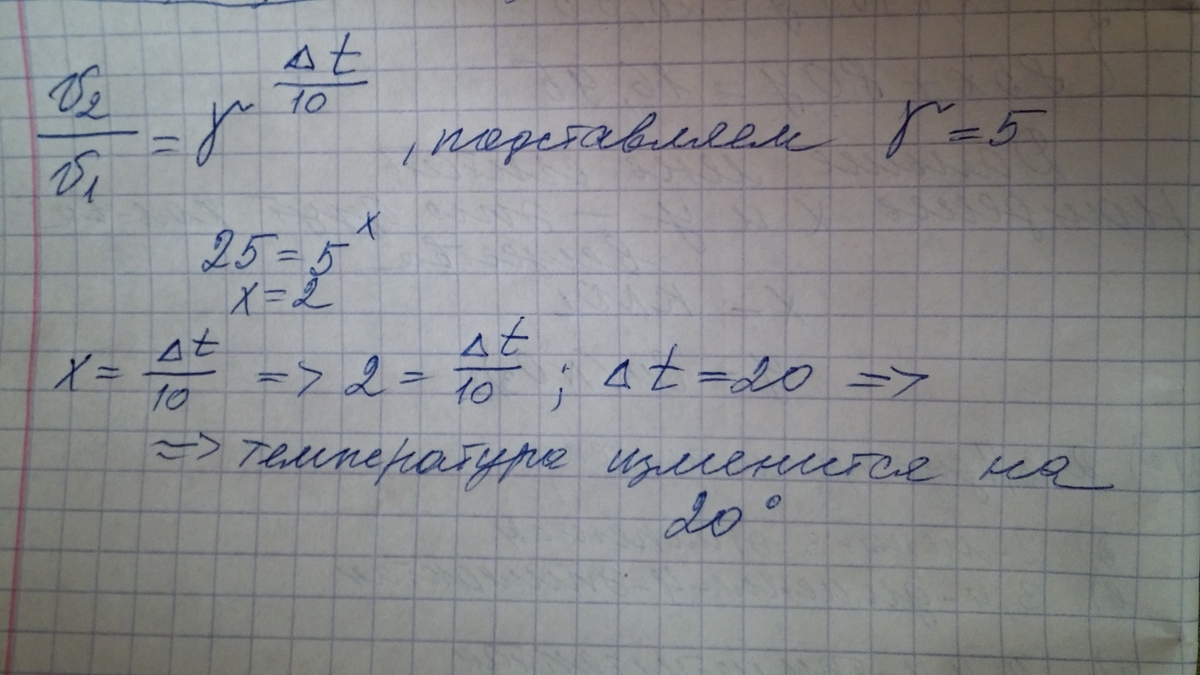 υ2/υ1 = γ^(Δt/10), подставляем γ = 5
25 = 5^x
x = 2
x = Δt/10 => 2 = Δt/10 ; Δt = 20 =>
=> температура изменится на
20°